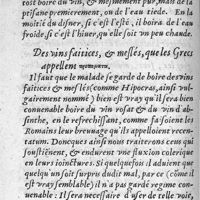 tost boire du vin, & mesmement pur, mais de la
ptisane premierement, ou de l'eau tiede. En la
moitié du disner, si c'est l'esté, il boira de l'eau
froide, si c'est l'hiuer, qu'elle soit vn peu chaude.
Des vins faitices, & meslés, que les Grecs
appellent
Il faut que le malade se garde de boire des vins
faitices & meslés (comme Hipocras, ainsi vul-
gairement nommé) bien est vray qu'il sera bien
conuenable boire du vin rosat & du vin d'ab-
sinthe, en le refrechissant, comme faisoient les
Romains leur breuuage qu'ils appelloient recen-
tatum. Doncques ainsi nous traiterons ceux qui
soustiennent, & endurent vne fluxion colerique
en leurs iointures. Si quelquefois il aduient que
quelqu'un soit surpris dudit mal, par ce (comme il
est vray semblable) il n'a pas gardé regime con-
uenable: Il sera necessaire d'vser de telle voie,